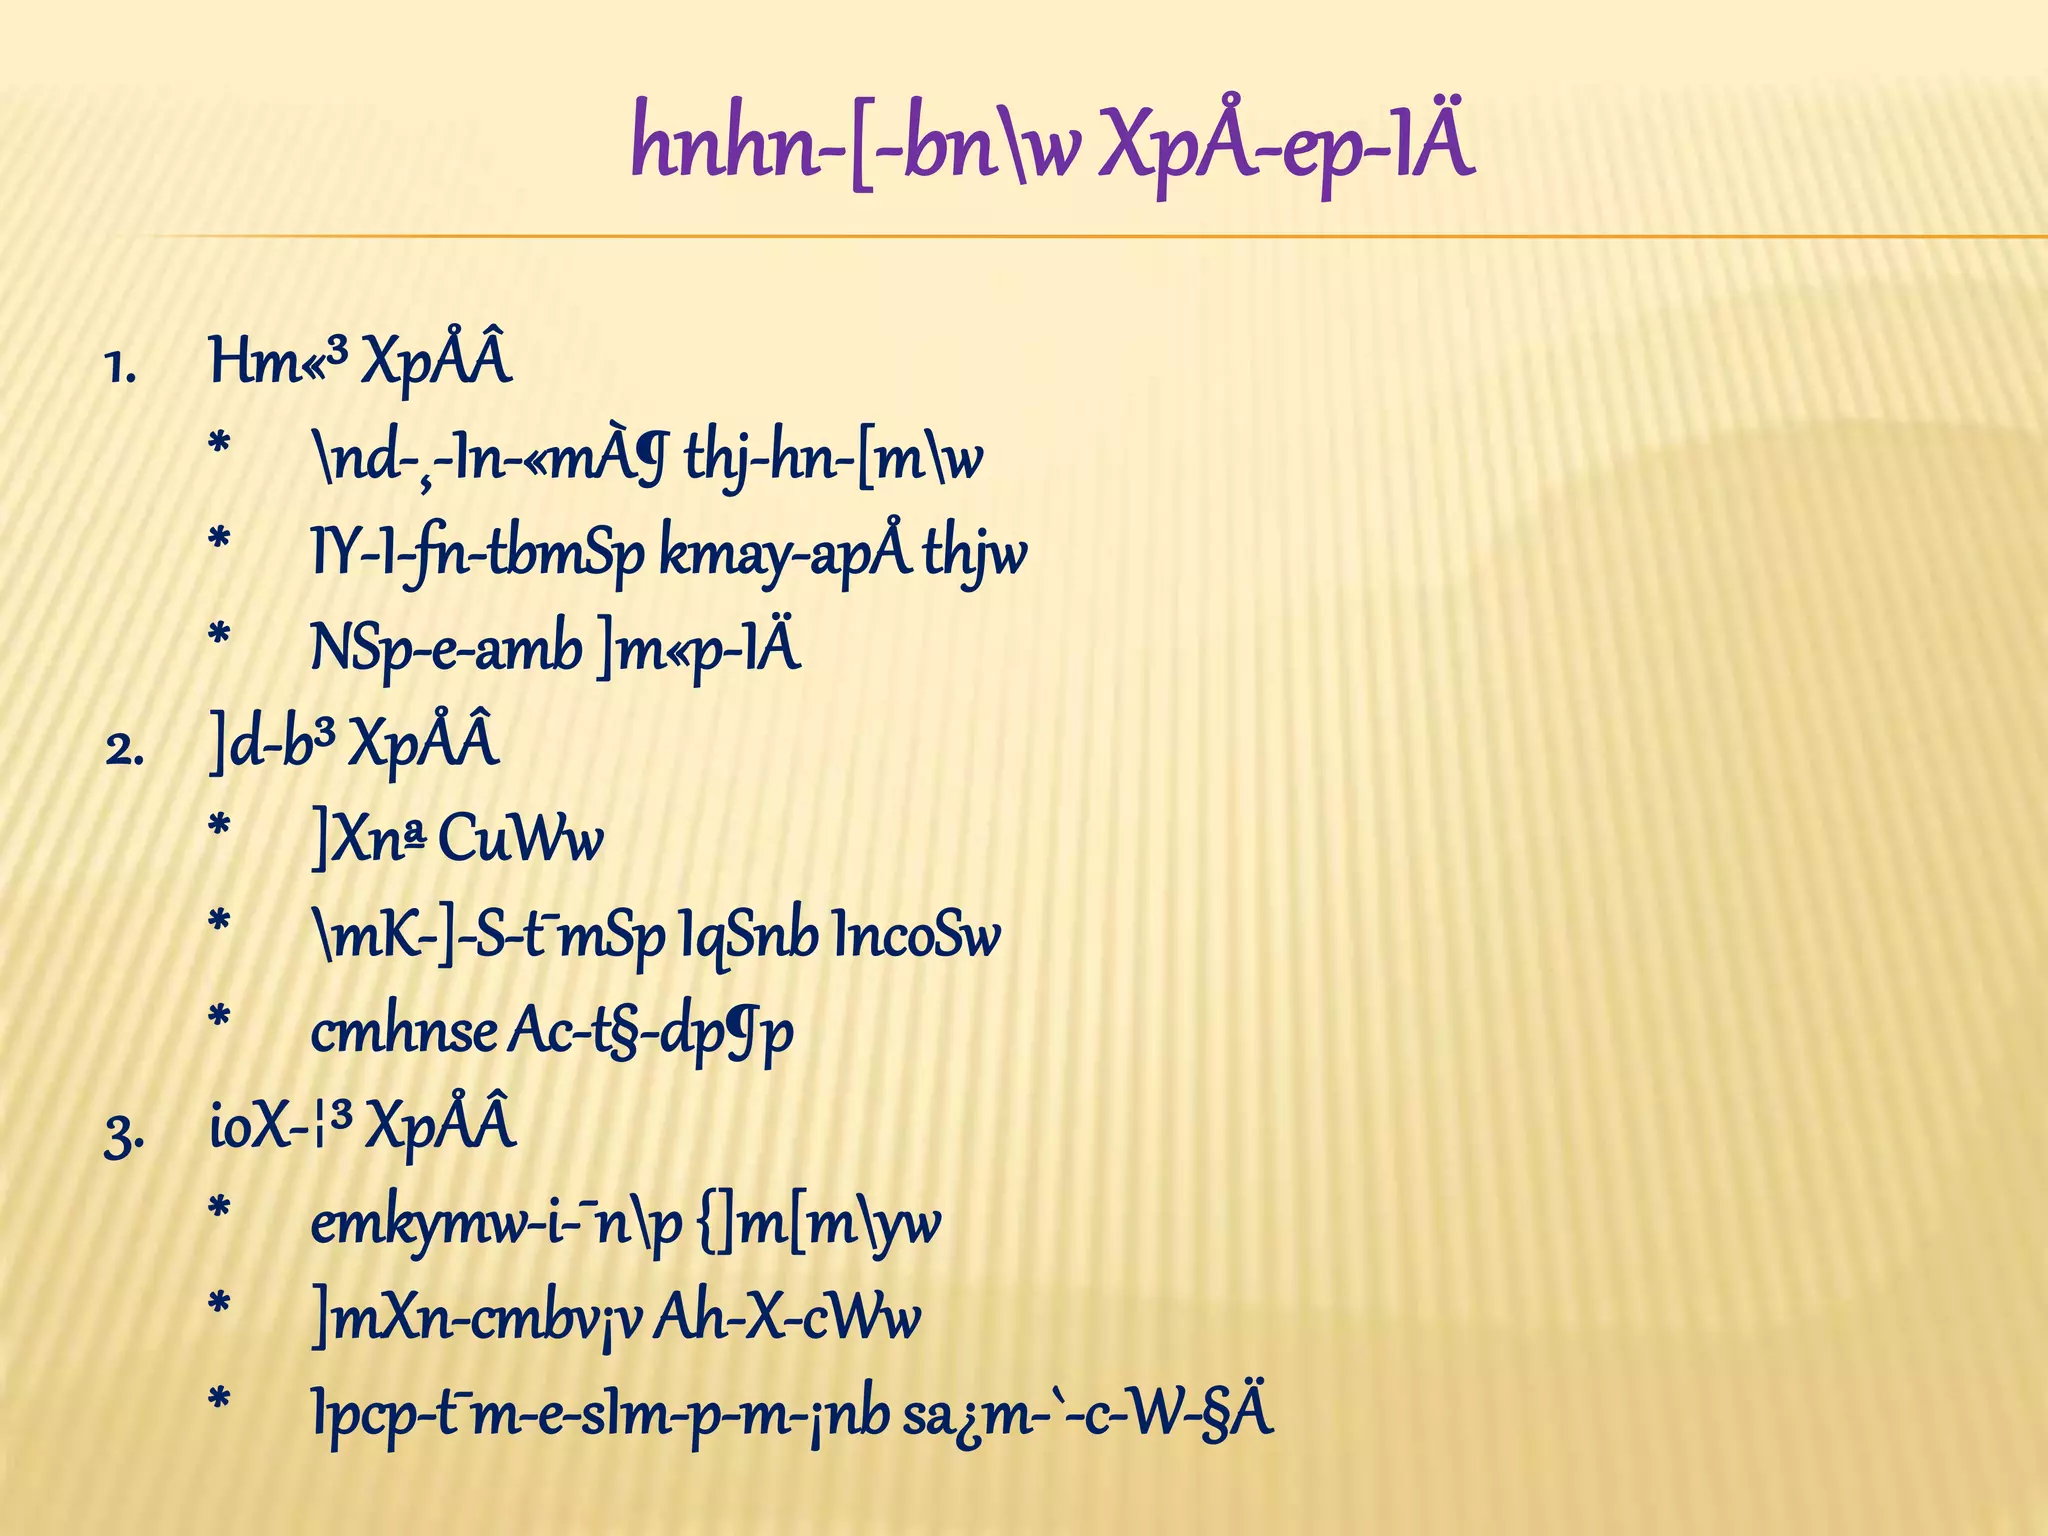 hnhn-[-bn\w XpÅ-ep-IÄ
1. Hm«³ XpÅÂ
* \nd-¸-In-«mÀ¶ thj-hn-[m\w
* IY-I-fn-tbmSp kmay-apÅ thjw
* NSp-e-amb ]m«p-IÄ
2. ]d-b³ XpÅÂ
* ]Xnª CuWw
* \mK-]-S-t¯mSp IqSnb IncoSw
* cmhnse Ac-t§-dp¶p
3. ioX-¦³ XpÅÂ
* emkymw-i-¯n\p {]m[m\yw
* ]mXn-cmbv¡v Ah-X-cWw
* Ipcp-t¯m-e-sIm-p-m-¡nb sa¿m-`-c-W-§Ä